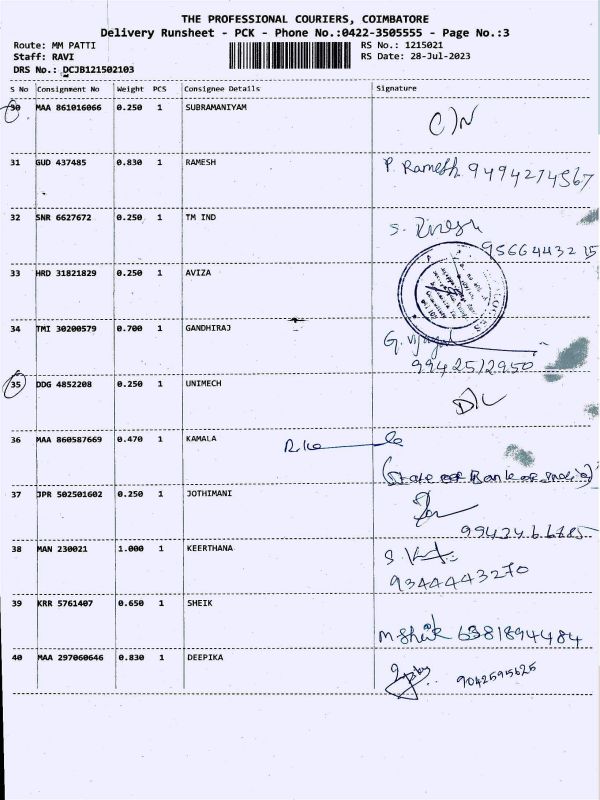 THE PROFESSIONAL COURIERS, COIMBATORE
Delivery Runsheet - PCK - Phone No.:0422-3505555 - Page No.:3
Route: MM PATTI RS No.: 1215021
Staff: RAVI RS Date: 28-Jul-2023
DRS No.: DCJB121502103
S No Consignment No Weight PCS Consignee Details Signature
30 MAA 861016066 0.250 1 SUBRAMANIYAM
31 GUD 437485 0.830 1 RAMESH P. Ramesh 9494274567
32 SNR 6627672 0.250 1 TM IND S. Dinesh
95664443215
33 HRD 31821829 0.250 1 AVIZA
34 TMI 30200579 0.700 1 GANDHIRAJ G. Vijaya
9942512950
35 DDG 4852208 0.250 1 UNIMECH D/L
36 MAA 860587669 0.470 1 KAMALA
(State of Bank of India)
37 JPR 502501602 0.250 1 JOTHIMANI
9943466785
38 MAN 230021 1.000 1 KEERTHANA
9344443270
39 KRR 5761407 0.650 1 SHEIK M. Sheik 6381894484
40 MAA 297060646 0.830 1 DEEPIKA 9042595625